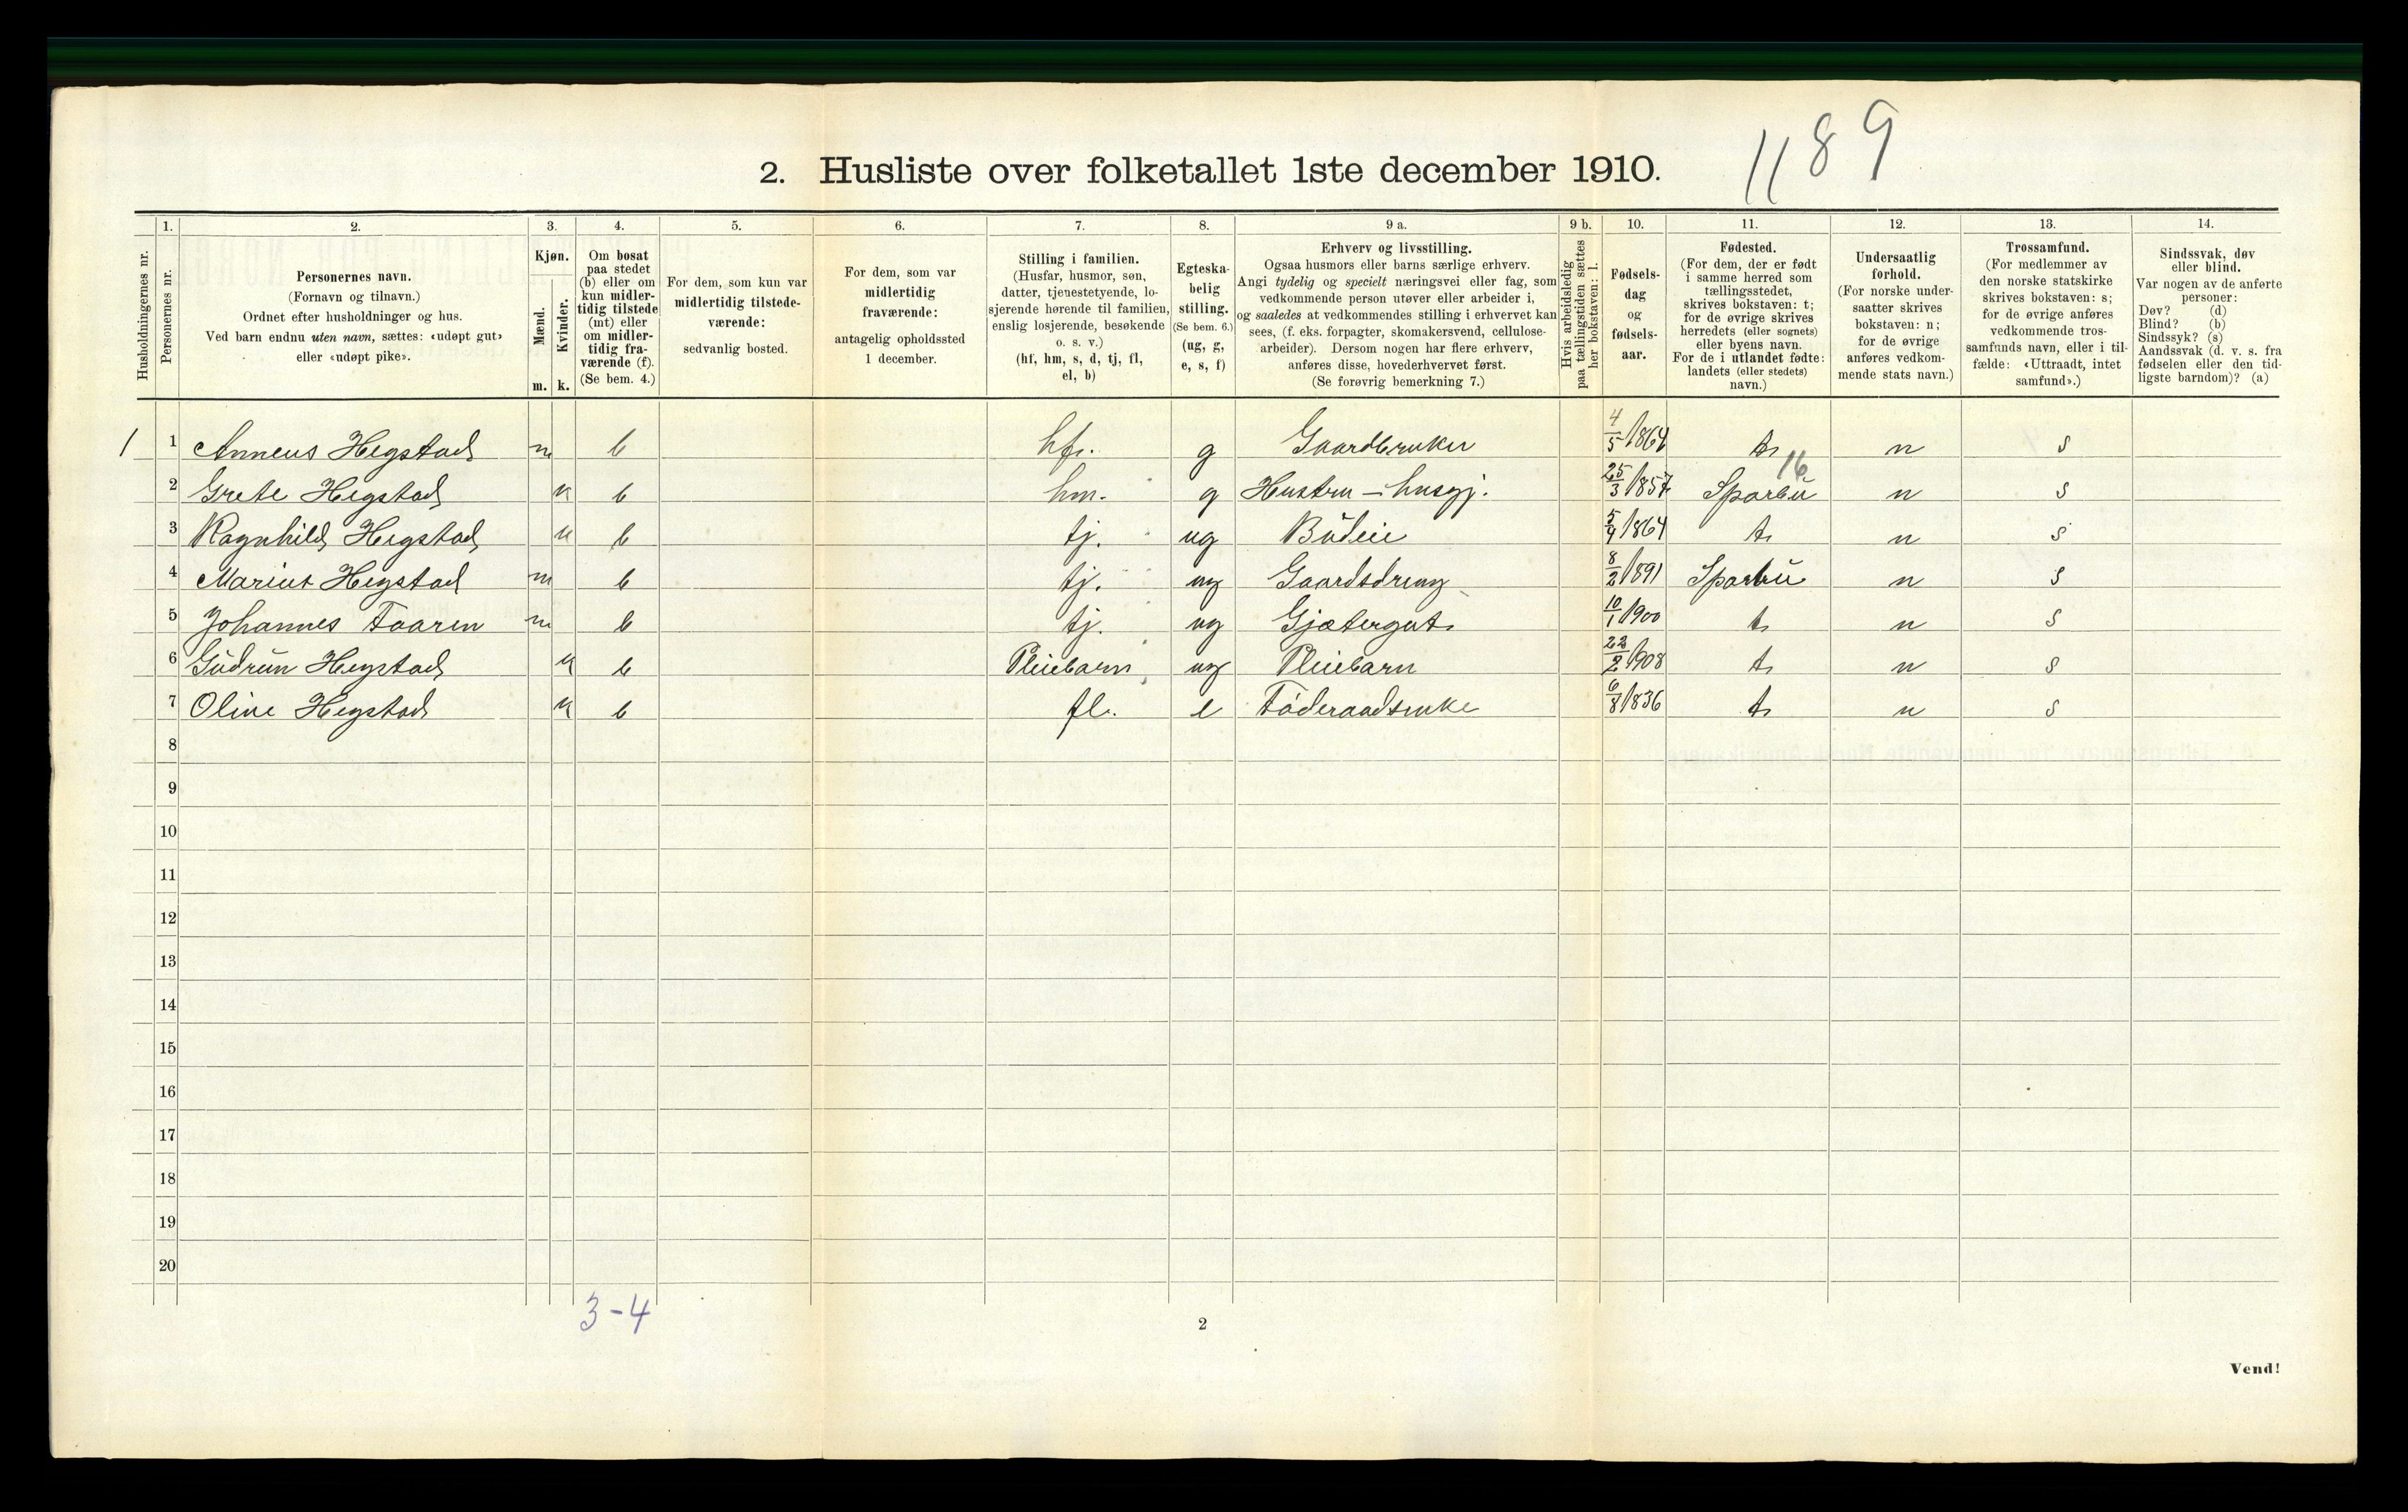 1189
2. Husliste over folketallet 1ste december 1910.
Husholdningernes nr.
1.
Personernes nr.
2.
Personernes navn.
(Fornavn og tilnavn.)
Ordnet efter husholdninger og hus.
Ved barn endnu uten navn, sættes: «udøpt gut»
eller «udøpt pike».
3.
Kjøn.
Mænd.
Kvinder.
m. k.
4.
Om bosat
paa stedet
(b) eller om
kun midler-
tidig tilstede
(mt) eller
om midler-
tidig fra-
værende (f).
(Se bem. 4.)
5.
For dem, som kun var
midlertidig tilstede-
værende:
sedvanlig bosted.
6.
For dem, som var
midlertidig
fraværende:
antagelig opholdssted
1 december.
7.
Stilling i familien.
(Husfar, husmor, søn,
datter, tjenestetyende, lo-
sjerende hørende til familien,
enslig losjerende, besøkende
o. s. v.)
(hf, hm, s, d, tj, fl,
el, b)
8.
Egteska-
belig
stilling.
(Se bem. 6.)
(ug, g,
e, s, f)
9 a.
Erhverv og livsstilling.
Ogsaa husmors eller barns særlige erhverv.
Angi tydelig og specielt næringsvei eller fag, som
vedkommende person utøver eller arbeider i,
og saaledes at vedkommendes stilling i erhvervet kan
sees, (f. eks. forpagter, skomakersvend, cellulose-
arbeider). Dersom nogen har flere erhverv,
anføres disse, hovederhvervet først.
(Se forøvrig bemerkning 7.)
9 b.
Hvis arbeidsledig
paa tællingstiden sættes
her bokstaven: l.
10.
Fødsels-
dag
og
fødsels-
aar.
11.
Fødested.
(For dem, der er født
i samme herred som
tællingsstedet,
skrives bokstaven: t;
for de øvrige skrives
herredets (eller sognets)
eller byens navn.
For de i utlandet fødte:
landets (eller stedets)
navn.)
12.
Undersaatlig
forhold.
(For norske under-
saatter skrives
bokstaven: n;
for de øvrige
anføres vedkom-
mende stats navn.)
13.
Trossamfund.
(For medlemmer av
den norske statskirke
skrives bokstaven: s;
for de øvrige anføres
vedkommende tros-
samfunds navn, eller i til-
fælde: «Uttraadt, intet
samfund».)
14.
Sindssvak, døv
eller blind.
Var nogen av de anførte
personer:
Døv? (d)
Blind? (b)
Sindssyk? (s)
Aandssvak (d. v. s. fra
fødselen eller den tid-
ligste barndom)? (a)
1 1 Anneus Hegstad m b hf. g Gaardbruker 4/5 1864 t n s
16
2 Grete Hegstad k b hm. g Hustru – husgj. 25/3 1857 Sparbu n s
3 Ragnhild Hegstad k b tj. ug Budeie 5/9 1864 t n s
4 Marius Hegstad m b tj. ug Gaardsdreng 8/2 1891 Sparbu n s
5 Johannes Faaren m b tj. ug Gjætergut 10/1 1900 t n s
6 Gudrun Hegstad k b Pleiebarn ug Pleiebarn 22/2 1908 t n s
7 Oline Hegstad k b fl. e Föderaadsenke 6/8 1836 t n s
8
9
10
11
12
13
14
15
16
17
18
19
20
3-4
2
Vend!